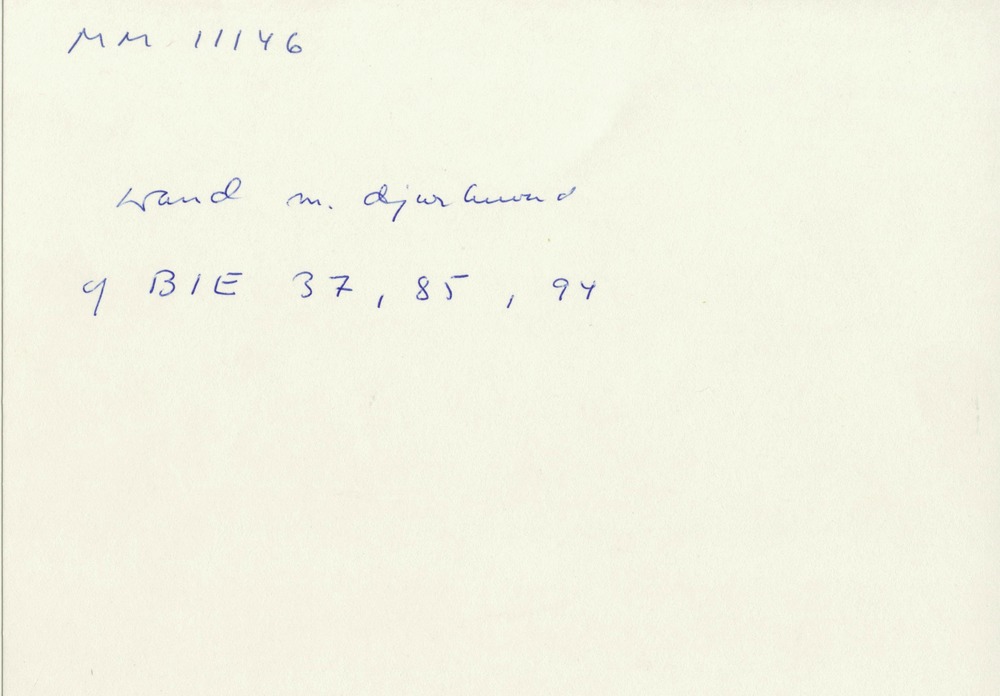 MM 11146
wand m. djurhuvud
cf BIE 37, 85, 94